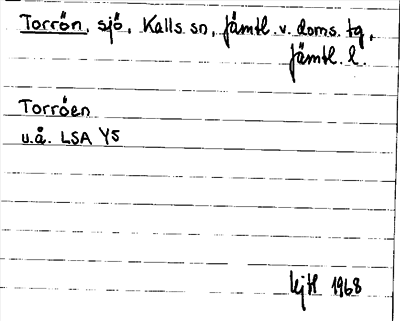 Torrön, sjö, Kalls sn, Jämtl. v. doms. tg,
Jämtl. l.
Torröen
u.å. LSA Y5
1968